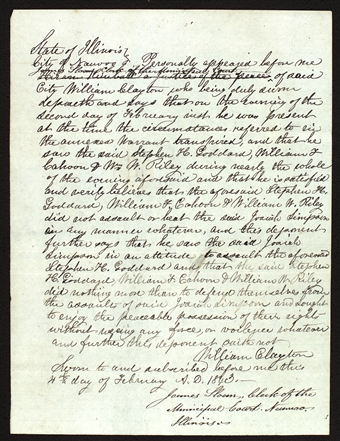 State of Illinois
City of Nauvoo } Personally appeared before me
James Sloan Clerk of the Municipal Court
of said
City William Clayton who being duly sworn
deposeth and says that on the evening of the
second day of February inst. he was present
at the time the circumstances referred to in
the annexed Warrant transpired, and that he
saw the said Stephen H. Goddard, William F.
Cahoon & Wm W. Riley during nearly the whole
of the evening aforesaid and that he is satisfied
and verily believes that the aforesaid Stephen H.
Goddard, William F. Cahoon & William W. Riley
did not assault or beat the said Josiah Simpson
in any manner whatever, and this deponent
further says that he saw the said Josiah
Simpson in an attitude to assault the aforesaid
Stephen H. Goddard and that the said Stephen
H. Goddard, William F. Cahoon & William W. Riley
did nothing more than to defend themselves from
the assaults of said Josiah Simpson and sought
to enjoy the peaceable possession of their rights
without using any force or violence whatever
and further this deponent saith not
William Clayton
Sworn to and subscribed before me this
4th day of February A.D. 1843.
James Sloan, Clerk of the
Municipal Court. Nauvoo,
Illinois